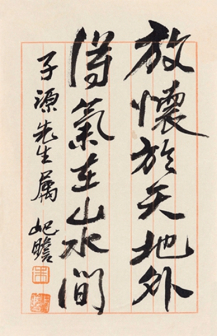 放懷於天地外
得氣在山水間
子源先生属 妃瞻